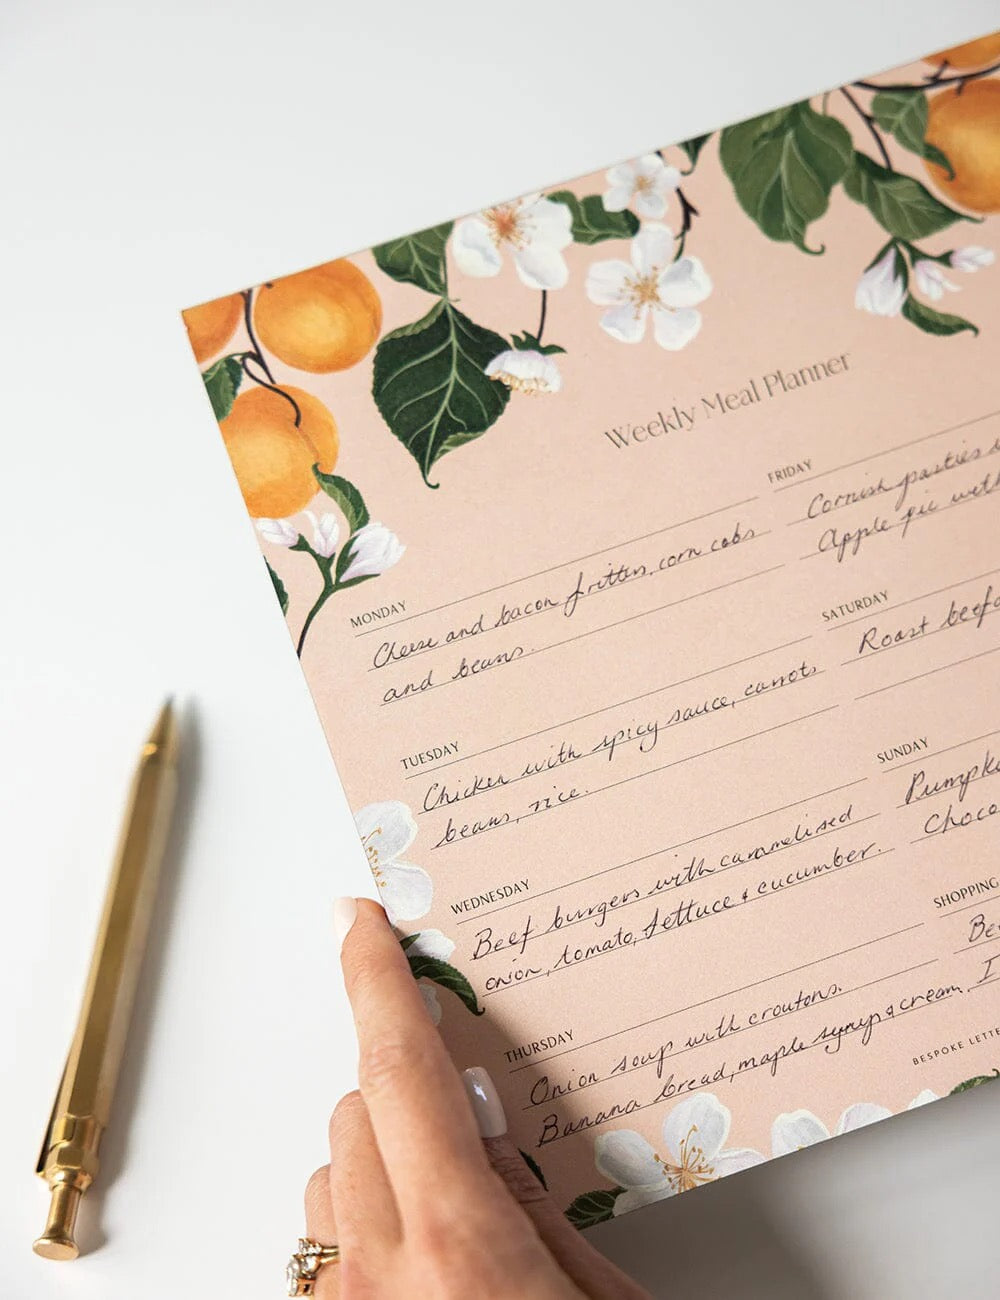 Weekly Meal Planner
MONDAY
Cheese and bacon fritters, corn cobs
and beans.
TUESDAY
Chicken with spicy sauce, carrots
beans, rice.
WEDNESDAY
Beef burgers with caramelised
onion, tomato, lettuce & cucumber.
THURSDAY
Onion soup with croutons.
Banana bread, maple syrup & cream.
FRIDAY
Cornish pasties
Apple pie with
SATURDAY
Roast beef
SUNDAY
SHOPPING
BESPOKE LETTE